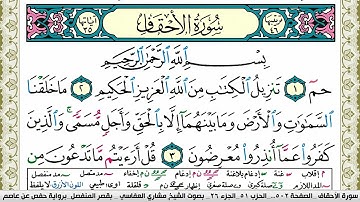 آياتها ٣٥ سُورَةُ الأَحْقَافِ رتبتها ٤٦
بِسْمِ اللَّهِ الرَّحْمَٰنِ الرَّحِيمِ
حمٓ ١ تَنزِيلُ الْكِتَابِ مِنَ اللَّهِ الْعَزِيزِ الْحَكِيمِ ٢ مَا خَلَقْنَا
السَّمَٰوَٰتِ وَالْأَرْضَ وَمَا بَيْنَهُمَا إِلَّا بِالْحَقِّ وَأَجَلٍ مُّسَمًّى ۚ وَالَّذِينَ
كَفَرُوا عَمَّا أُنذِرُوا مُعْرِضُونَ ٣ قُلْ أَرَءَيْتُم مَّا تَدْعُونَ مِن
سورة الأحقاف الصفحة ٥٠٢ الجزء ٢٦ بصوت الشيخ مشاري العفاسي بقصر المنفصل برواية حفص عن عاصم